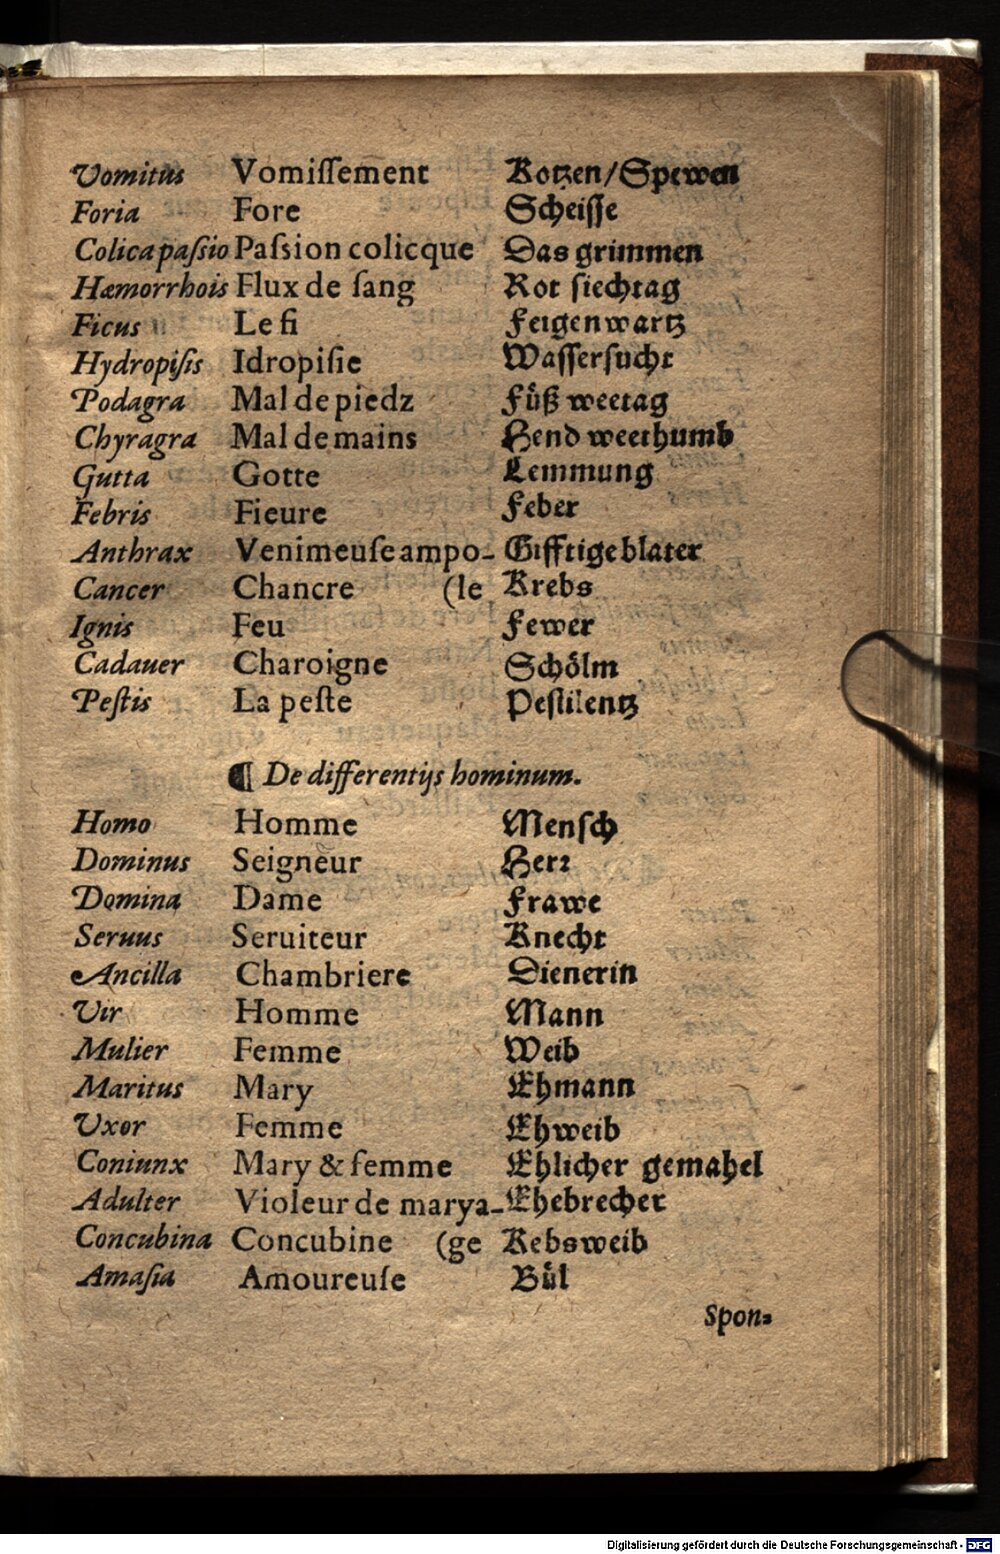 Vomitus Vomiſſement Kotzen/Spewen
Foria Fore Scheiſſe
Colica paſsio Paſsion colicque Das grimmen
Hæmorrhois Flux de ſang Rot ſiechtag
Ficus Le fi Feigenwartz
Hydropiſis Idropiſie Waſſerſucht
Podagra Mal de piedz Fuͤß weetag
Chyragra Mal de mains Hend weethumb
Gutta Gotte Lemmung
Febris Fieure Feber
Anthrax Venimeuſe ampo- Gifftige blater
Cancer Chancre (le Krebs
Ignis Feu Fewer
Cadauer Charoigne Schoͤlm
Peſtis La peſte Peſtilentz
¶ De differentijs hominum.
Homo Homme Menſch
Dominus Seigneur Herꝛ
Domina Dame Frawe
Seruus Seruiteur Knecht
Ancilla Chambriere Dienerin
Vir Homme Mann
Mulier Femme Weib
Maritus Mary Ehmann
Vxor Femme Ehweib
Coniunx Mary & femme Ehlicher gemahel
Adulter Violeur de marya- Ehebrecher
Concubina Concubine (ge Kebsweib
Amaſia Amoureuſe Buͤl
Spon⸗
Digitalisierung gefördert durch die Deutsche Forschungsgemeinschaft - DFG